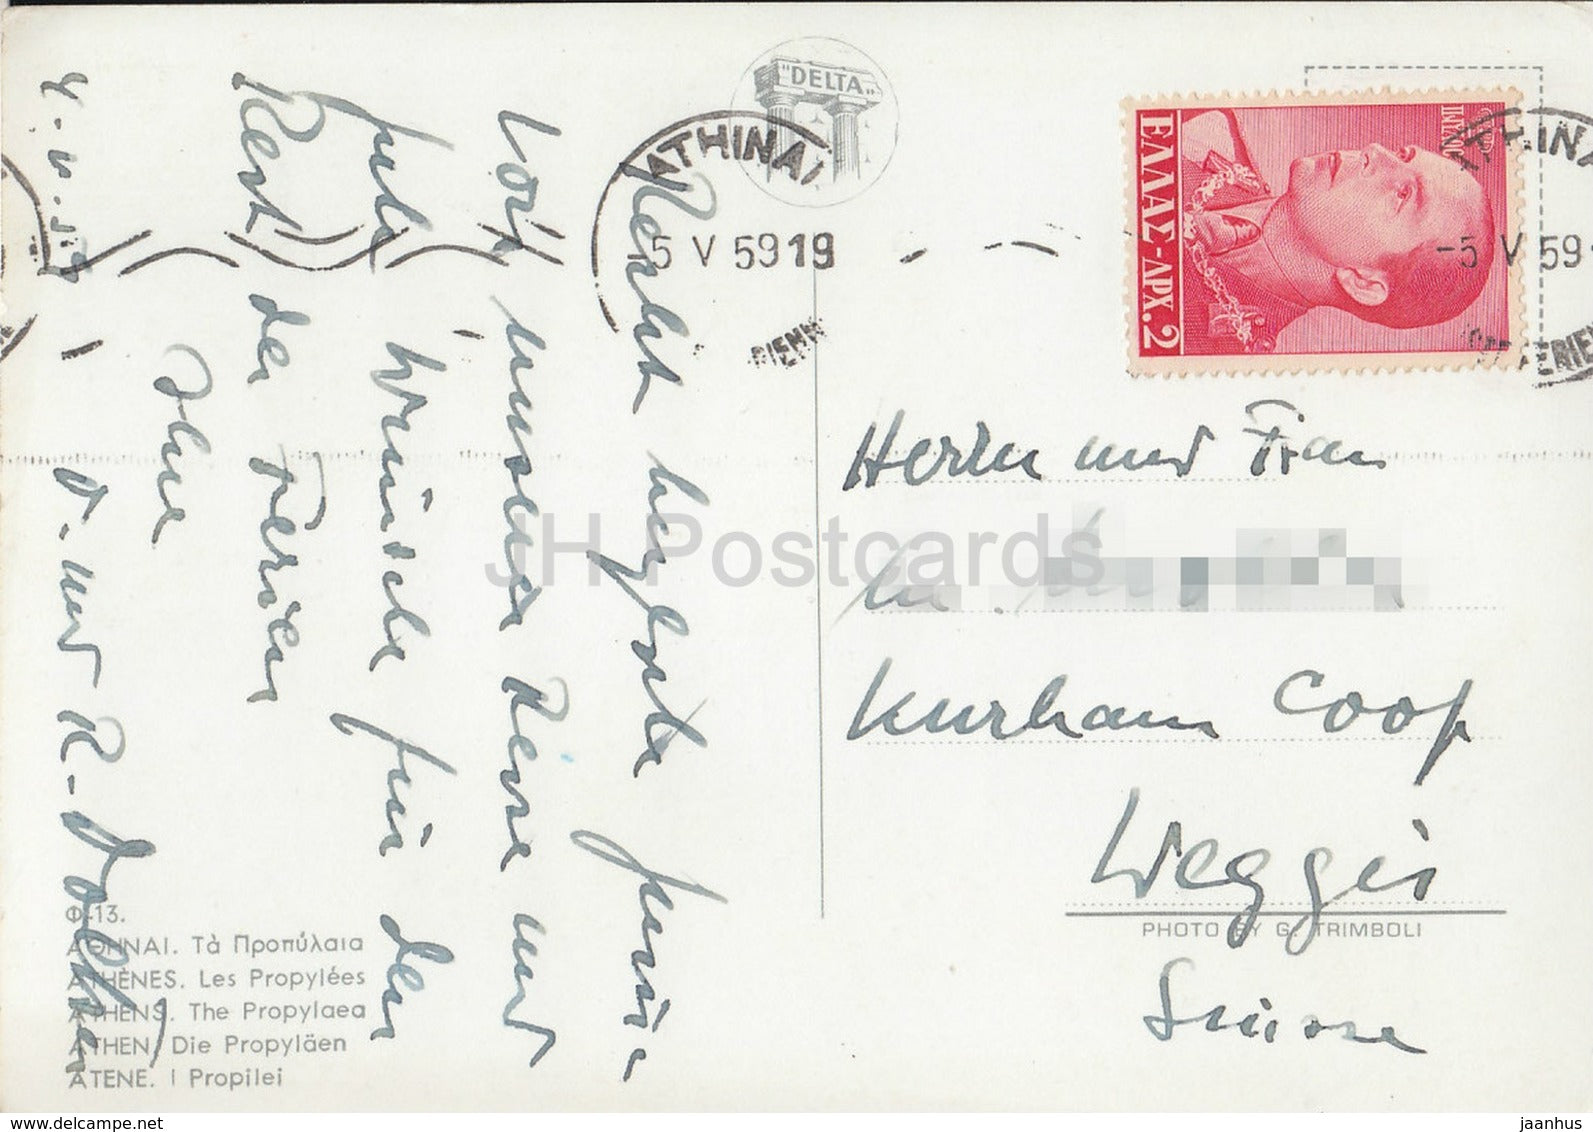 4. V. 59
Recht herzliche Grüsse
von unserer Reise und
gute Wünsche für den
Rest der Ferien
Ihre
D. und R.
"DELTA"
ATHINAI
5 V 59 19
ΕΛΛΑΣ-ΔΡΧ.2
ATHINAI
-5 V 59
Herrn und Frau
Kurhaus Coop
Weggis
PHOTO BY G. TRIMBOLI
Suisse
Φ.13.
ΑΘΗΝΑΙ. Τὰ Προπύλαια
ATHÈNES. Les Propylées
ATHENS. The Propylaea
ATHEN. Die Propyläen
ATENE. I Propilei
JH Postcards
www.delcampe.net
jaanhus